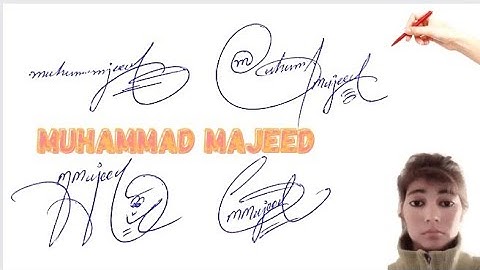 muhummmjeed
m uhumm majeed
MUHAMMAD MAJEED
mmajeed
mmajeed